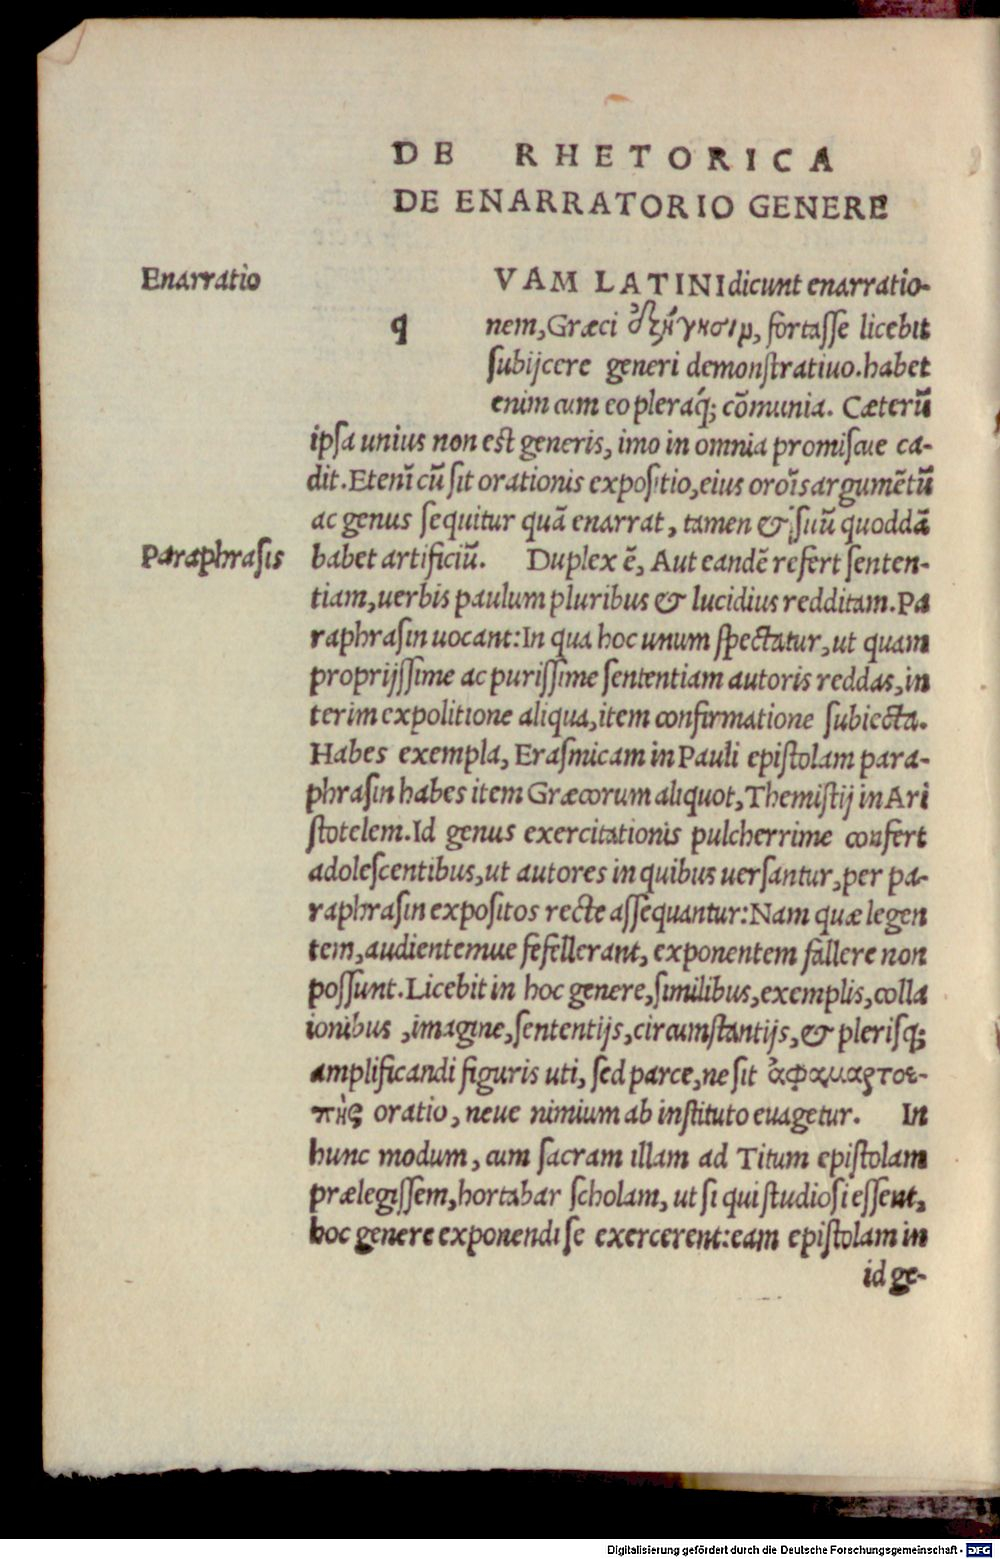 DE RHETORICA
DE ENARRATORIO GENERE
Enarratio
q
VAM LATINI dicunt enarratio-
nem, Græci ἐξήγησιμ, fortasse licebit
subijcere generi demonstratiuo. habet
enim cum eo pleraq́; cõmunia. Cæterũ
ipsa unius non est generis, imo in omnia promiscue ca-
dit. Etenĩ cũ sit orationis expositio, eius oroĩs argumẽtũ
ac genus sequitur quã enarrat, tamen & suũ quoddã
Paraphrasis
habet artificiũ. Duplex ẽ, Aut eandẽ refert senten-
tiam, uerbis paulum pluribus & lucidius redditam. Pa
raphrasin uocant: In qua hoc unum spectatur, ut quam
proprijssime ac purissime sententiam autoris reddas, in
terim expolitione aliqua, item confirmatione subiecta.
Habes exempla, Erasmicam in Pauli epistolam para-
phrasin habes item Græcorum aliquot, Themistij in Ari
stotelem. Id genus exercitationis pulcherrime confert
adolescentibus, ut autores in quibus uersantur, per pa-
raphrasin expositos recte assequantur: Nam quæ legen
tem, audientemue fefellerant, exponentem fallere non
possunt. Licebit in hoc genere, similibus, exemplis, colla
ionibus , imagine, sententijs, circumstantijs, & plerisq;
amplificandi figuris uti, sed parce, ne sit ἀφαμαρτοε-
πὴς oratio, neue nimium ab instituto euagetur. In
hunc modum, cum sacram illam ad Titum epistolam
prælegissem, hortabar scholam, ut si qui studiosi essent,
hoc genere exponendi se exercerent: eam epistolam in
id ge-
Digitalisierung gefördert durch die Deutsche Forschungsgemeinschaft - DFG